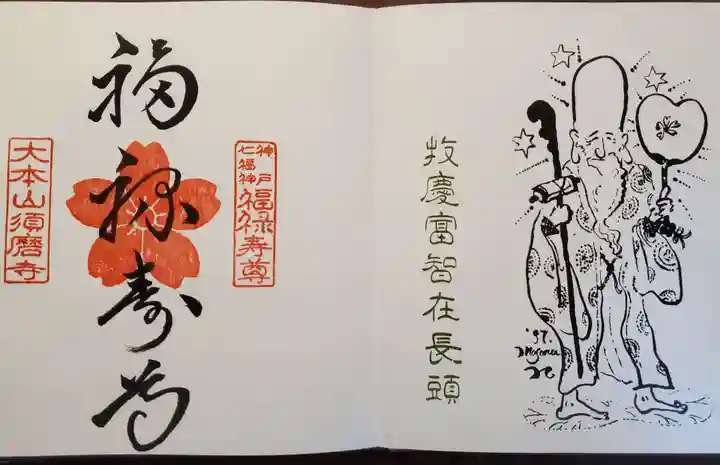 '97.
牧慶富智在長頭
神戸
七福神
福禄寿尊
福禄寿尊
大本山須磨寺